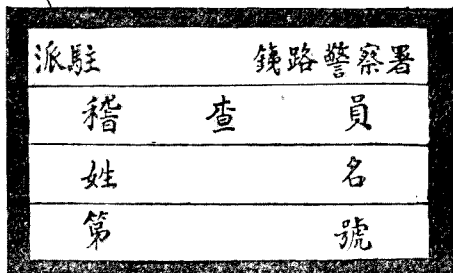 派駐 銕路警察署
稽查員
姓名
第號